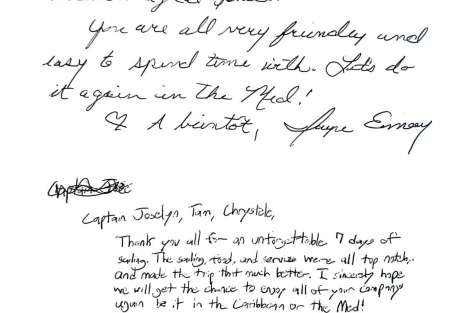 You are all very friendly and
easy to spend time with. Let's do
it again in the Med!
A bientot,
Captain Joscelyn, Tam, Chrystele,
Thank you all for an unforgettable 7 days of
sailing. The sailing, food, and service were all top notch,
and made the trip that much better. I sincerely hope
we will get the chance to enjoy all of your company
again be it in the Caribbean or the Med!